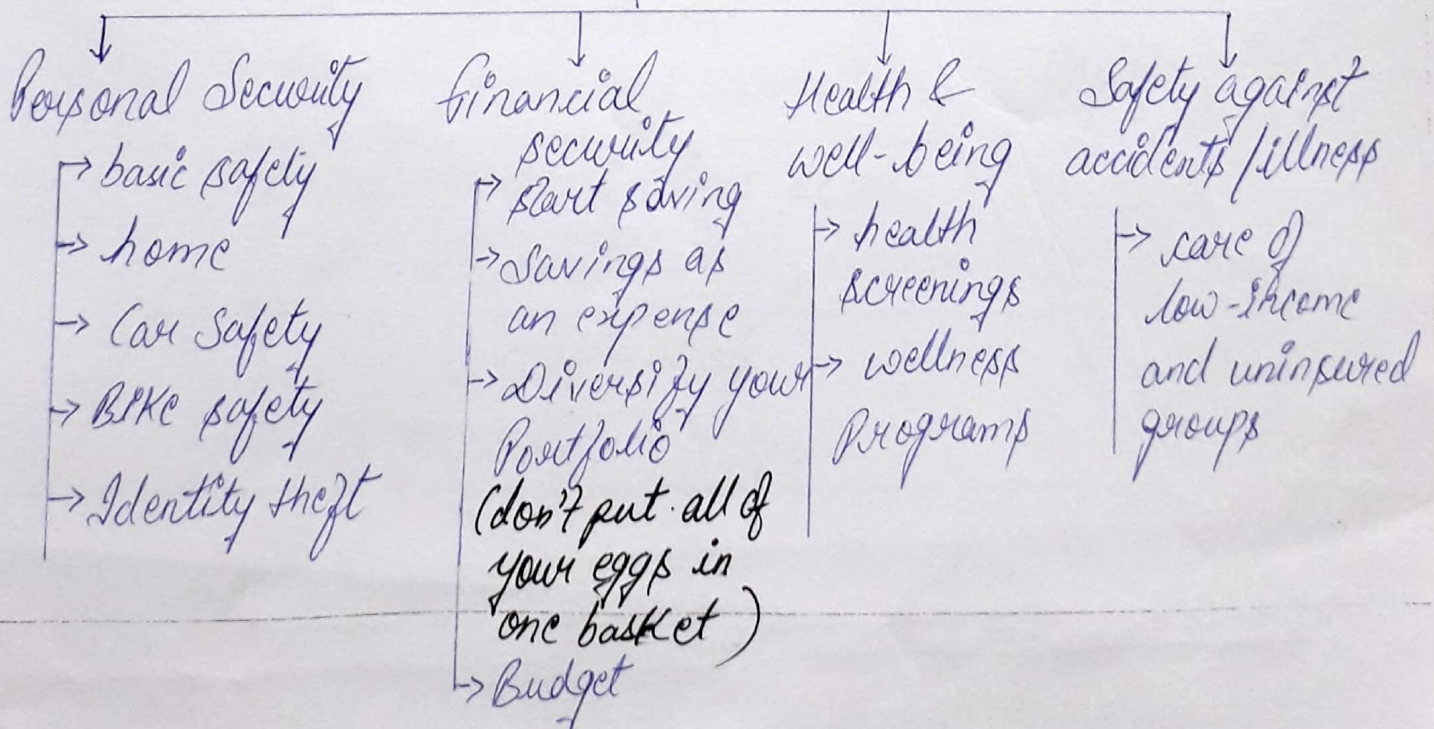 Personal Security
basic safety
home
Car Safety
Bike safety
Identity theft
financial
security
start saving
Savings as
an expense
Diversify your
Portfolio
(don't put all of
your eggs in
one basket)
Budget
Health &
well-being
health
screenings
wellness
Programs
Safety against
accidents/illness
care of
low-income
and uninsured
groups